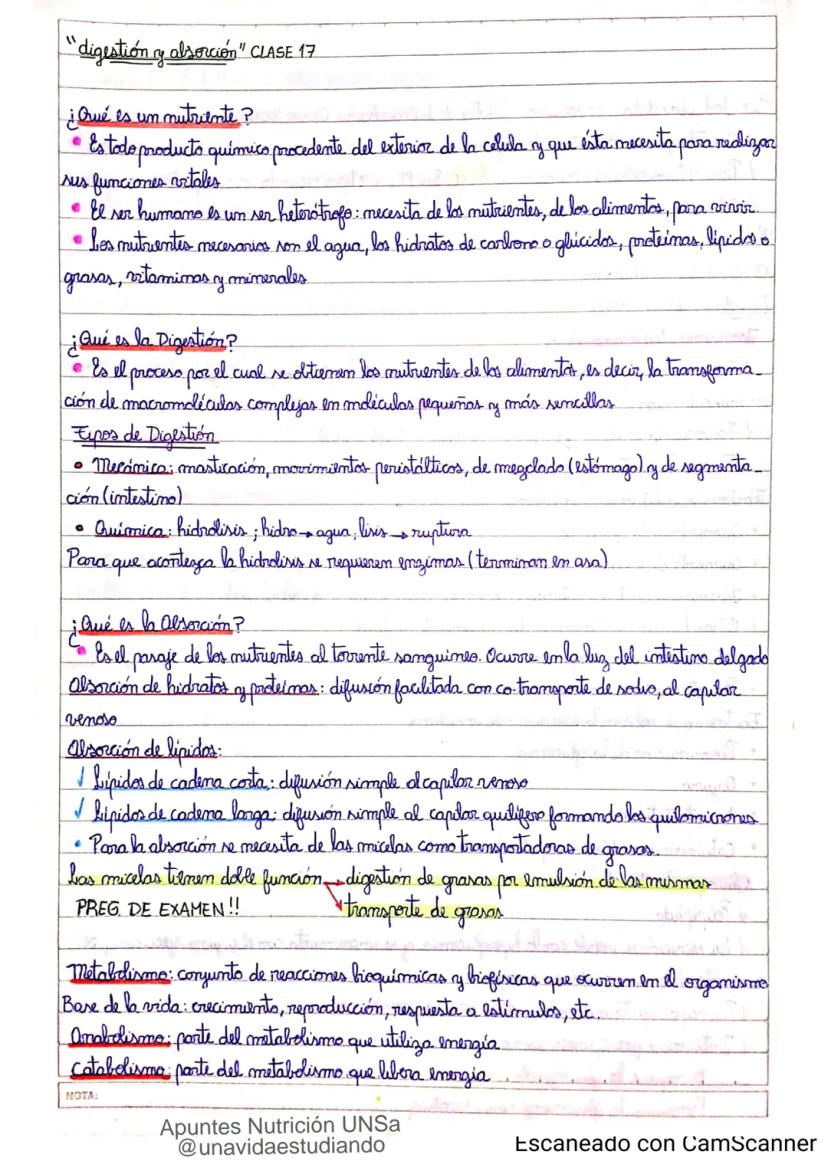 "digestión y absorción" CLASE 17
¿Qué es un nutriente?
• Es todo producto químico procedente del exterior de la celula y que ésta necesita para realizar
sus funciones vitales
• El ser humano es un ser heterótrofo: necesita de los nutrientes, de los alimentos, para vivir.
• Los nutrientes necesarios son el agua, los hidratos de carbono o glúcidos, proteínas, lípidos o
grasas, vitaminas y minerales
¿Qué es la Digestión?
• Es el proceso por el cual se obtienen los nutrientes de los alimentos, es decir, la transforma_
ción de macromoléculas complejas en moléculas pequeñas y más sencillas
Tipos de Digestión
• Mecánica: masticación, movimientos peristálticos, de mezclado (estómago) y de segmenta_
ción (intestino)
• Química: hidrólisis; hidro → agua, lisis → ruptura
Para que acontezca la hidrolisis se requieren enzimas (terminan en asa)
¿Qué es la Absorción?
• Es el pasaje de los nutrientes al torrente sanguineo. Ocurre en la luz del intestino delgado
Absorción de hidratos y proteínas: difusión facilitada con co-transporte de sodio, al capilar
venoso
Absorción de lípidos:
✓ Lípidos de cadena corta: difusión simple al capilar venoso
✓ Lípidos de cadena larga: difusión simple al capilar quilífero formando los quilomicrones
• Para la absorción se necesita de las micelas como transportadoras de grasas.
Las micelas tienen doble función → digestión de grasas por emulsión de las mismas
PREG. DE EXAMEN!! ↘ transporte de grasas
Metabolismo: conjunto de reacciones bioquímicas y biofísicas que ocurren en el organismo
Base de la vida: crecimiento, reproducción, respuesta a estímulos, etc.
Anabolismo: parte del metabolismo que utiliza energía
Catabolismo: parte del metabolismo que libera energía
NOTA:
Apuntes Nutrición UNSa
@unavidaestudiando
Escaneado con CamScanner